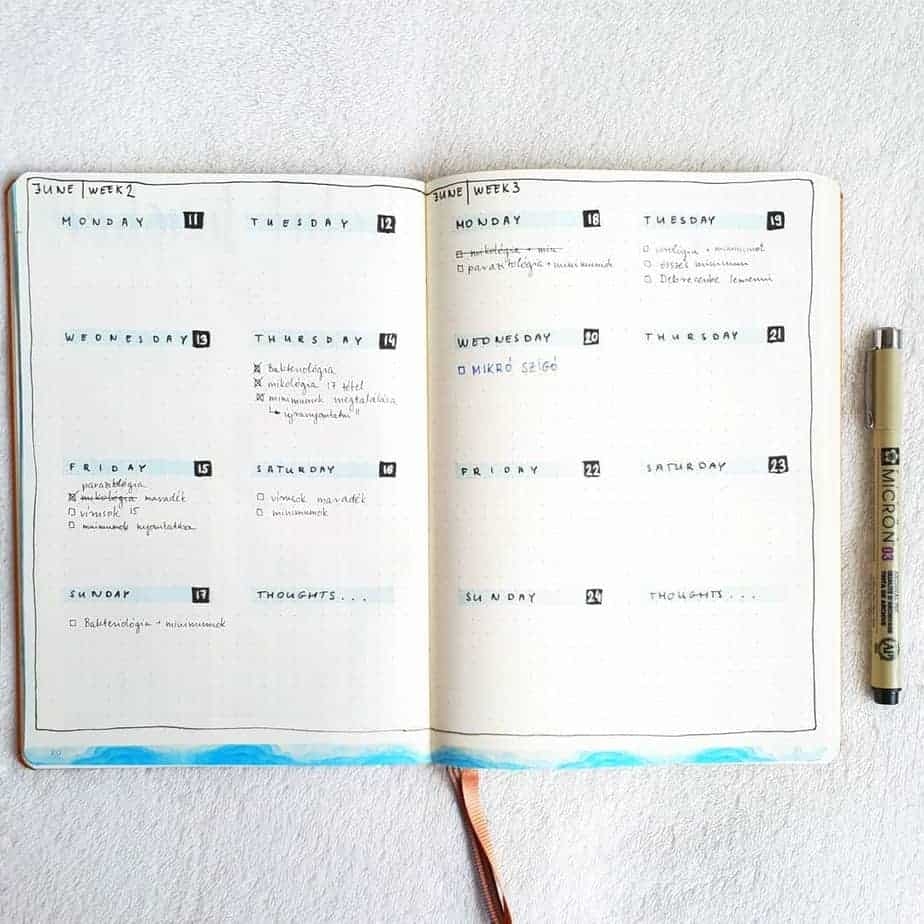 JUNE | WEEK 2
MONDAY 11
TUESDAY 12
WEDNESDAY 13
THURSDAY 14
Bakteriológia
mikológia 17 tétel
minimumok megtalálása
újranyomtatni
FRIDAY 15
parazitológia
mikológia maradék
vírusok 15
minimumok nyomtatása
SATURDAY 16
vírusok maradék
minimumok
SUNDAY 17
Bakteriológia + minimumok
THOUGHTS...
20
JUNE | WEEK 3
MONDAY 18
mikológia + min
parazitológia + minimumok
TUESDAY 19
virológia + minimumok
összes minimum
Debrecenbe lemenni
WEDNESDAY 20
MIKRÓ SZIGÓ
THURSDAY 21
FRIDAY 22
SATURDAY 23
SUNDAY 24
THOUGHTS...
MICRON 03